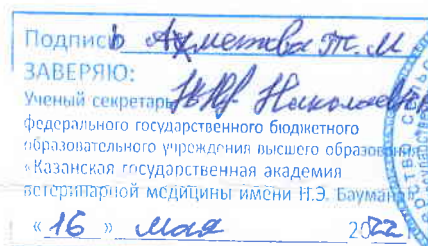 Подпись Ахметова Т.М
ЗАВЕРЯЮ:
Ученый секретарь
федерального государственного бюджетного
образовательного учреждения высшего образования
«Казанская государственная академия
ветеринарной медицины имени Н.Э. Баумана
« 16 » мая 2022